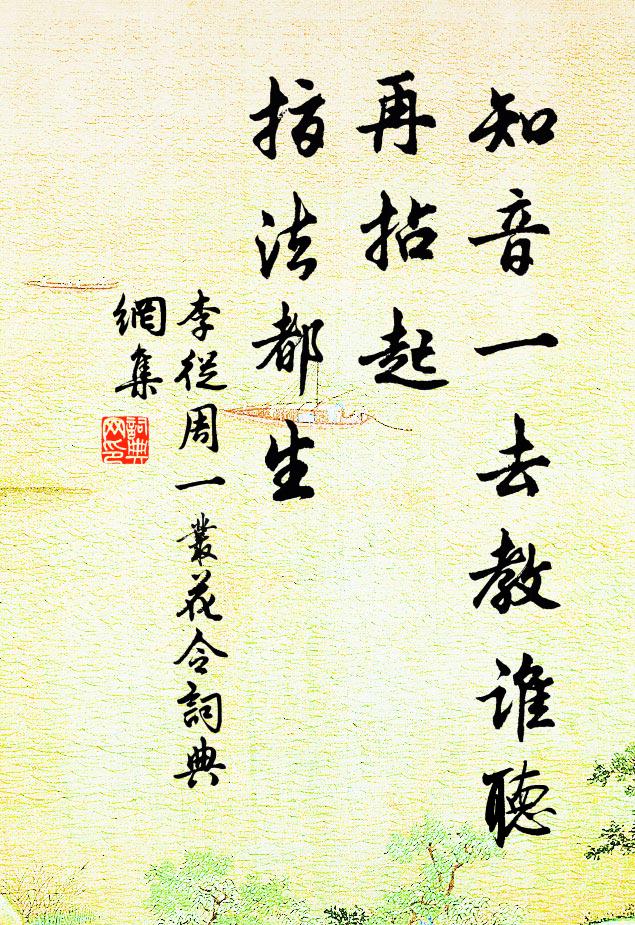 知音一去教誰聽
再拈起
指法都生
李從周一叢花令詞典
網集
詞典
网印